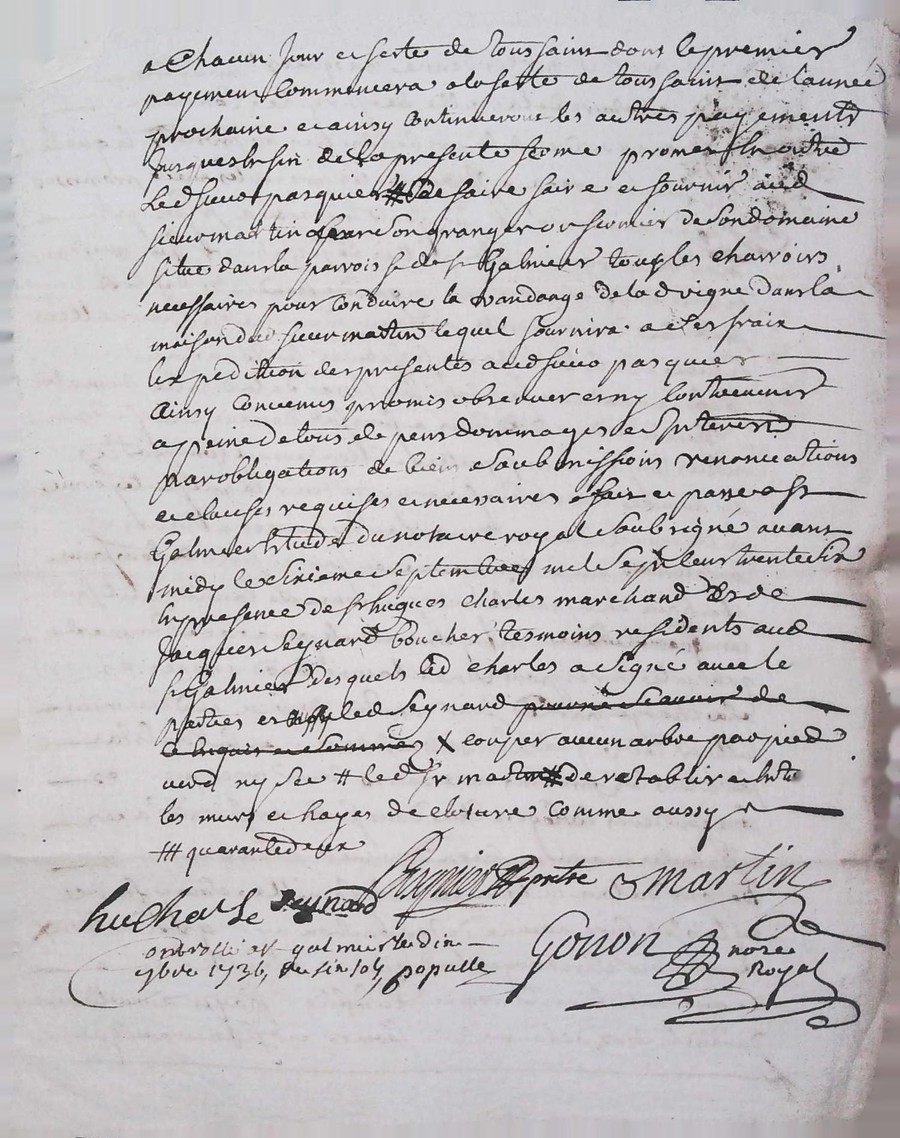 a Chacun Jour et feste de toussaint dont le premier
payement Commencera a la feste de toussaint de l'année
prochaine et ainsy Continueront les autres payements
Jusques la fin de la presente ferme promet En outre
Led sieur pasquier # de faire faire et fournir aud
sieur martin par Son granger ou fermier de Son domaine
situé dans la parroisse de st Galmier tous les charroirs
necessaires pour Conduire la vandange de la d vigne dans la
maison dud sieur martin lequel fournira a ses frais
lexpedition des presentes aud sieur pasquier
Ainsy Convenus promis observer et ny Contrevenir
a peine de tous depens dommages et Interests
par obligations de biens soubmissions renonciations
et clauses requises et necessaires fait et passé a st
Galmier Etude du notaire royal Soubsigné avant
midy le sixieme Septembre mil Sept Cens trente Six
En presence de sr hugues Charles marchand Et de
Jacques Seynard boucher tesmoins residents aud
st Galmier desquels led Charles a Signé avec le
parties et led Seynard pour ne Scavoir de
ce Enquis et Sommés X couper aucun arbre par pied
verd ny sec # led sr martin # de retablir et Entr
les murs et hayes de cloture comme aussy
## quarante deux
Pasquier martin
hu Charle Seynard
Controllé a st galmier le dix
9bre 1736, Gonon nore
Royal